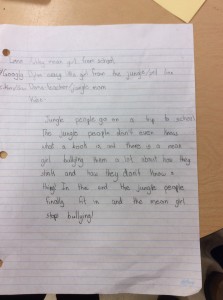 Lane Riley mean girl from school
Dylan the girl from the jungle
teacher/jungle mom
Jungle people go on a trip to school
The jungle people don't even know
what a book is and there is a mean
girl bullying them a lot about how they
and how they don't know a
thing! In the end the jungle people
finally fit in and the mean girl
stop bullying!